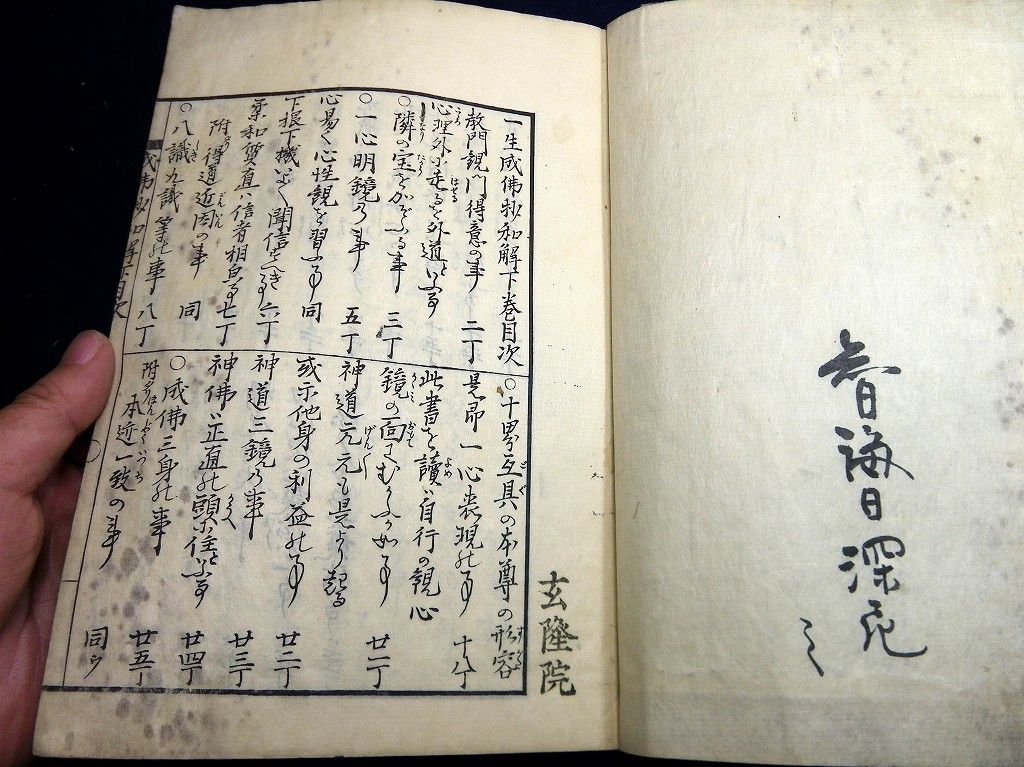 一生成佛抄和解下巻目次
教門観門得意の事 二丁
心理外に走るを外道といふ事
○隣の宝をかぞふる事 三丁
○一心明鏡乃事 五丁
心易く心性観を習ふ事 同
下根下機はよく聞信すべき事 六丁
柔和質直は信者相自る 七丁
附得道近因の事 同
○八識九識等の事 八丁
成佛抄和解下目次
○十界互具の本尊の形容
是即一心表現の事 十八丁
此書を讀は自行の観心
鏡の面にむかふが如き事 廿一丁
神道元元も是より起る
或示他身の利益の事 廿二丁
神道三鏡乃事 廿三丁
神佛は正直の頭に住といふ事 廿四丁
○成佛三身の事 廿五丁
附本迹一致の事 同ウ
玄隆院
日深